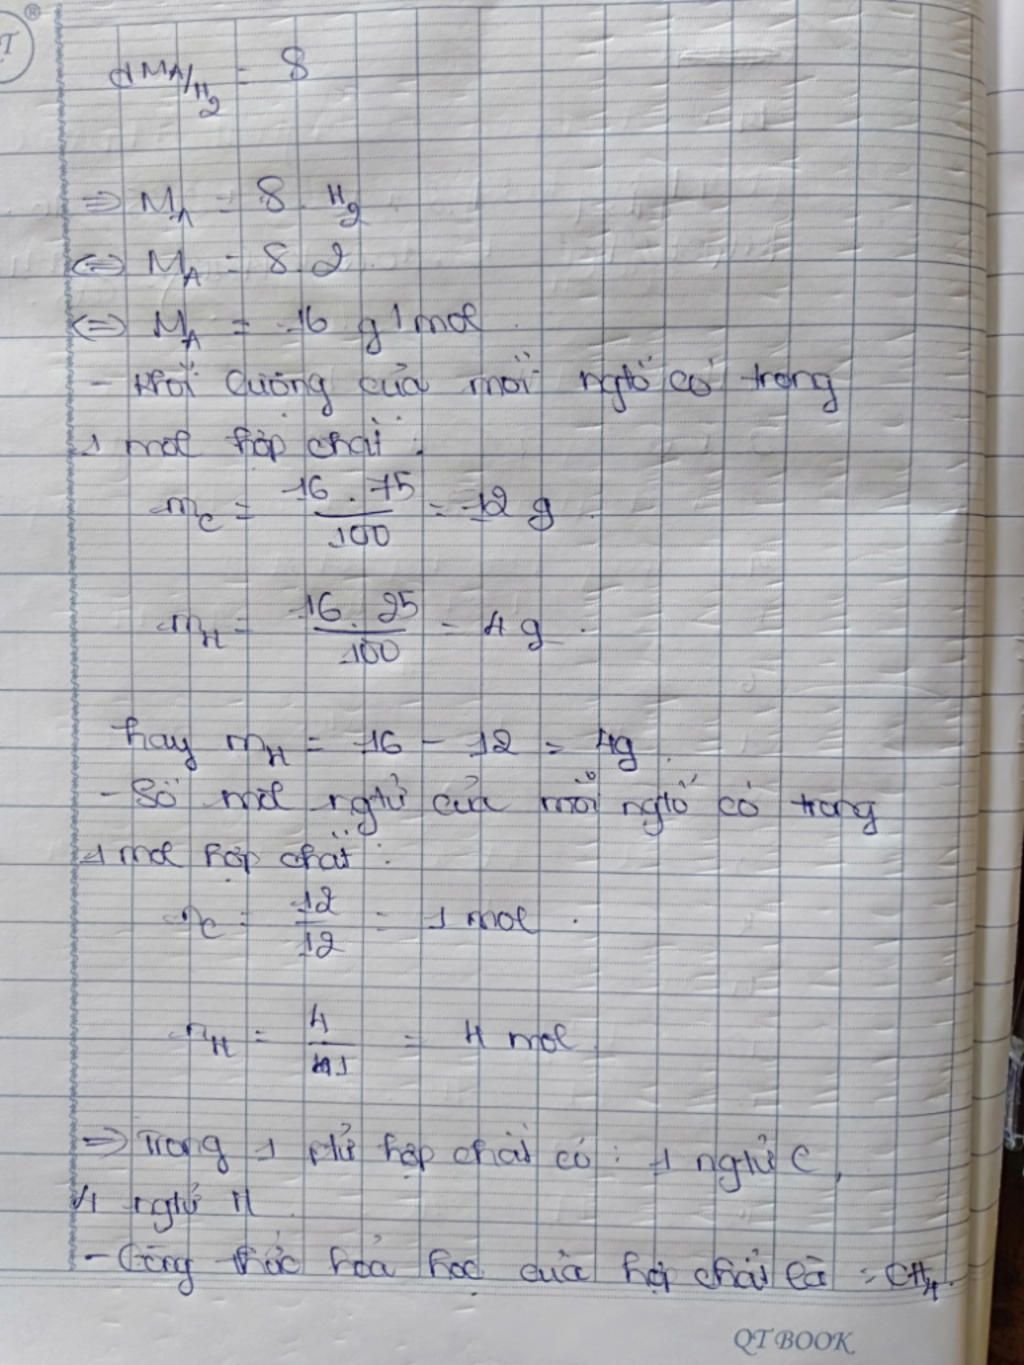 T ®
dMA/H2 = 8
=> MA = 8. H2
<=> MA = 8.2
<=> MA = 16 g/mol.
- Khối lượng của mỗi ngtố có trong
1 mol hợp chất :
mC = 16 . 75 / 100 = 12 g.
mH = 16. 25 / 100 = 4 g.
hay mH = 16 - 12 = 4g.
- Số mol ngtử của mỗi ngtố có trong
1 mol hợp chất :
nC = 12 / 12 = 1 mol.
nH = 4 / 1 = 4 mol
=> Trong 1 ptử hợp chất có : 1 ngtử C,
4 ngtử H.
- Công thức hoá học của hợp chất là = CH4.
QT BOOK